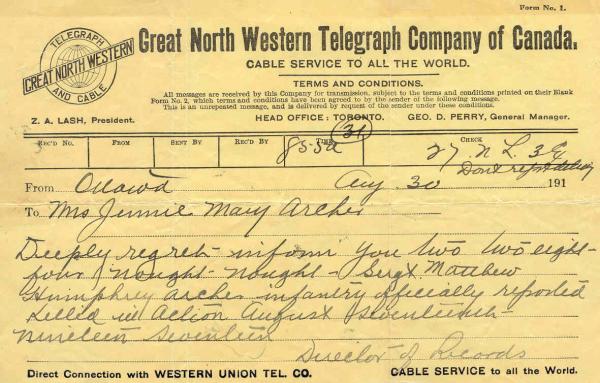 Form No. 1.
TELEGRAPH
GREAT NORTH WESTERN
AND CABLE
Great North Western Telegraph Company of Canada.
CABLE SERVICE TO ALL THE WORLD.
TERMS AND CONDITIONS.
All messages are received by this Company for transmission, subject to the terms and conditions printed on their Blank
Form No. 2, which terms and conditions have been agreed to by the sender of the following message.
This is an unrepeated message, and is delivered by request of the sender under these conditions.
Z. A. LASH, President. HEAD OFFICE: TORONTO. GEO. D. PERRY, General Manager.
REC'D NO. FROM SENT BY REC'D BY TIME CHECK
27 N L
Don't report delivery
From Ottawa Aug. 30 191
To Mrs Jennie Mary Archer
Deeply regret inform you two two eight
four nought nought Sergt Matthew
Humphrey Archer infantry officially reported
killed in action August seventeenth
nineteen seventeen
Director of Records
Direct Connection with WESTERN UNION TEL. CO. CABLE SERVICE to all the World.